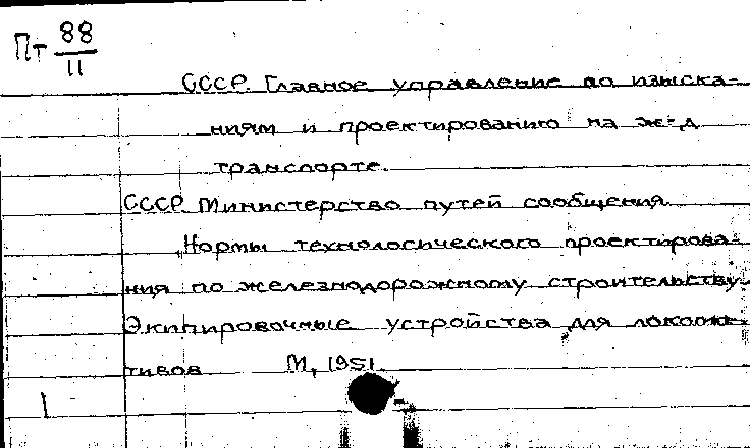 Пт 88
11
СССР. Главное управление по изыска-
ниям и проектированию на ж-д
транспорте.
СССР. Министерство путей сообщения.
Нормы технологического проектирова-
ния по железнодорожному строительству.
Экипировочные устройства для локомо-
тивов М, 1951.
1